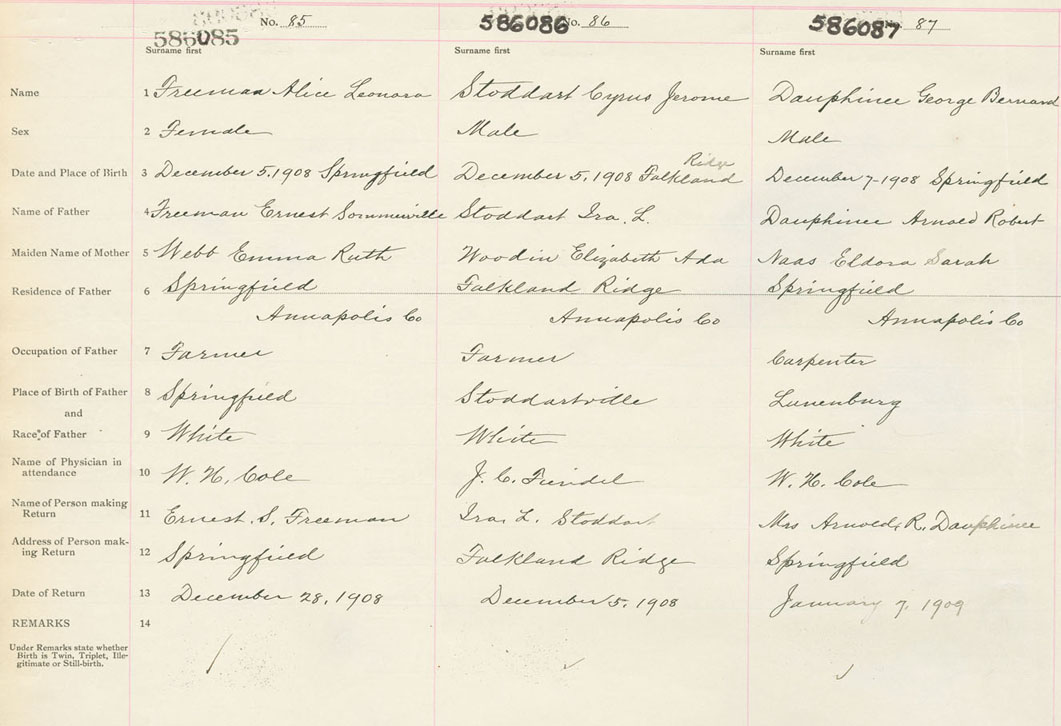 No. 85 586086 No. 86 586087 87
586085
Surname first Surname first Surname first
Name 1 Freeman Alice Leonora Stoddart Cyrus Jerome Dauphinee George Bernard
Sex 2 Female Male Male
Ridge
Date and Place of Birth 3 December 5, 1908 Springfield December 5, 1908 Falkland December 7-1908 Springfield
Name of Father 4 Freeman Ernest Sommerville Stoddart Ira. L. Dauphinee Arnold Robert
Maiden Name of Mother 5 Webb Emma Ruth Woodin Elizabeth Ada Naas Eldora Sarah
Residence of Father 6 Springfield Falkland Ridge Springfield
Annapolis Co Annapolis Co Annapolis Co
Occupation of Father 7 Farmer Farmer Carpenter
Place of Birth of Father 8 Springfield Stoddartville Lunenburg
and
Race of Father 9 White White White
Name of Physician in
attendance 10 W. H. Cole J. C. W. H. Cole
Name of Person making
Return 11 Ernest. S. Freeman Ira. L. Stoddart Mrs Arnold, R. Dauphinee
Address of Person mak-
ing Return 12 Springfield Falkland Ridge Springfield
Date of Return 13 December 28, 1908 December 5, 1908 January 7, 1909
REMARKS 14
Under Remarks state whether
Birth is Twin, Triplet, Ille-
gitimate or Still-birth.